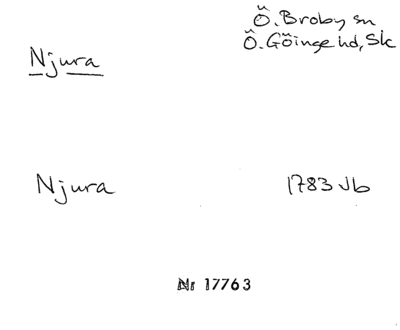 Ö. Broby sn
Ö. Göinge hd, Sk
Njura
Njura 1783 Jb
Nr 17763